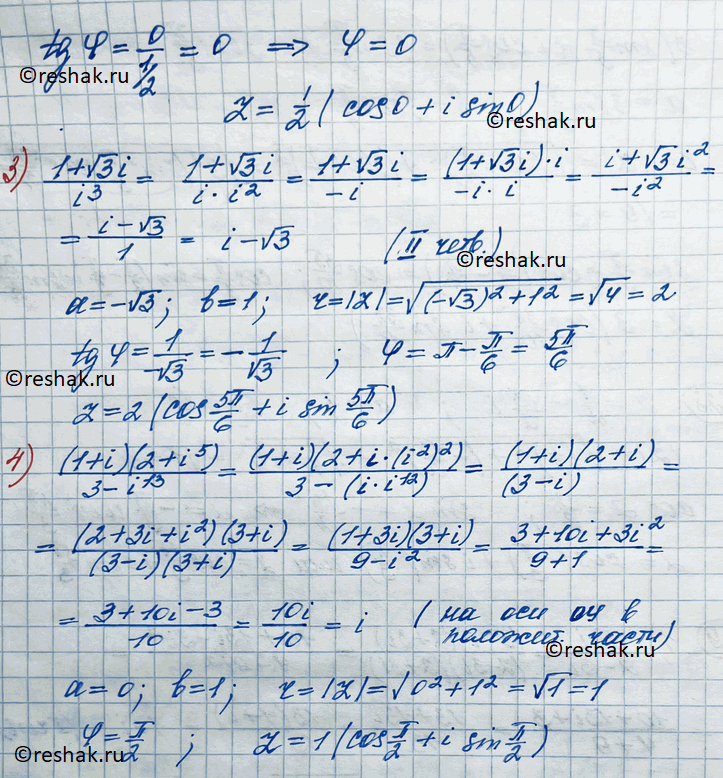 tg φ = 0/(1/2) = 0 ⟹ φ = 0
©reshak.ru
z = 1/2 ( cos0 + i sin0 )
©reshak.ru
3) (1+√3i)/i³ = (1+√3i)/(i·i²) = (1+√3i)/(−i) = ((1+√3i)·i)/(−i·i) = (i+√3i²)/(−i²) =
= (i−√3)/1 = i−√3 (II четв.)
©reshak.ru
a=−√3; b=1; r=|z|=√((−√3)²+1²) =√4 = 2
tg φ = 1/(−√3) = −1/√3 ; φ = π−π/6 = 5π/6
©reshak.ru
z=2 (cos 5π/6 + i sin 5π/6)
4) ((1+i)(2+i⁵))/(3−i¹³) = ((1+i)(2+i·(i²)²))/(3−(i·i¹²)) = ((1+i)(2+i))/(3−i) =
©reshak.ru
= ((2+3i+i²)(3+i))/((3−i)(3+i)) = ((1+3i)(3+i))/(9−i²) = (3+10i+3i²)/(9+1) =
= (3+10i−3)/10 = 10i/10 = i (на оси oy в
положит. части)
©reshak.ru
a=0; b=1; r=|z|=√(0²+1²) =√1=1
©reshak.ru
φ=π/2 ; z=1(cos π/2 + i sin π/2)
©reshak.ru